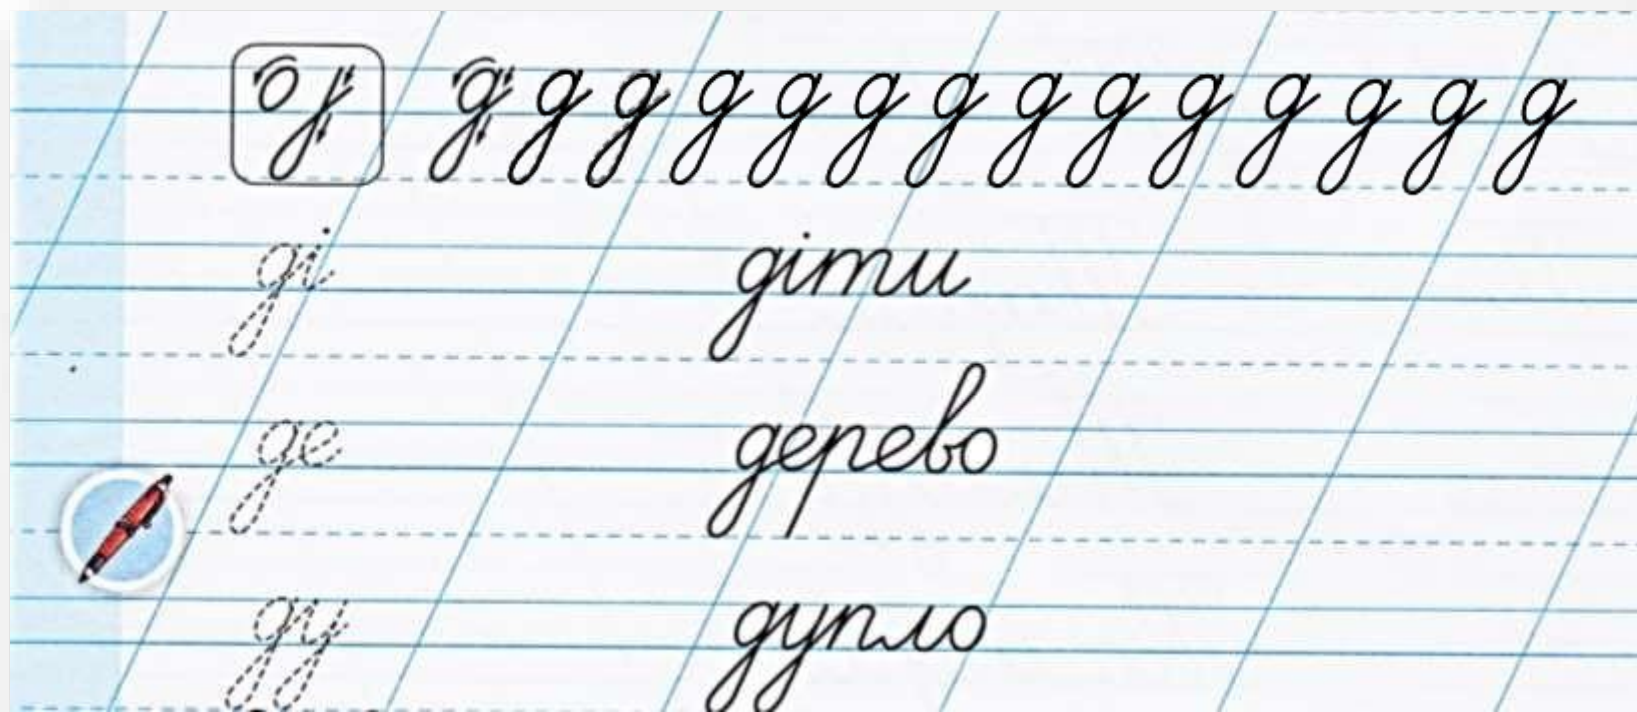 о j д д д д д д д д д д д д д д
ді діти
де дерево
ду дупло